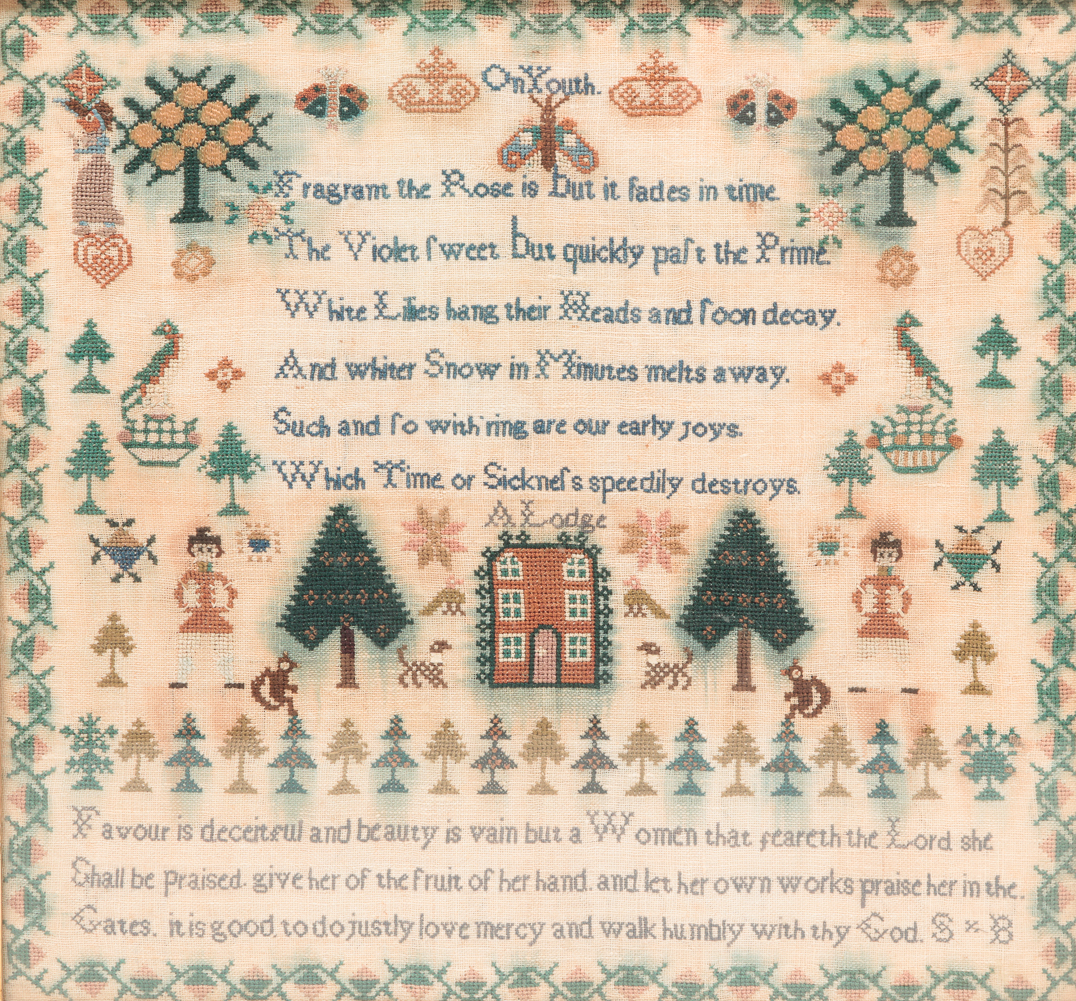 On Youth.
Fragrant the Rose is but it fades in time
The Violet ſweet but quickly paſt the Prime.
White Lilies hang their Heads and ſoon decay.
And whiter Snow in Minutes melts away.
Such and ſo with'ring are our early joys.
Which Time or Sickneſs speedily destroys.
A Lodge
Favour is deceitful and beauty is vain but a Women that feareth the Lord she
Shall be praised. give her of the fruit of her hand. and let her own works praise her in the.
Gates. it is good to do justly love mercy and walk humbly with thy God. S × B